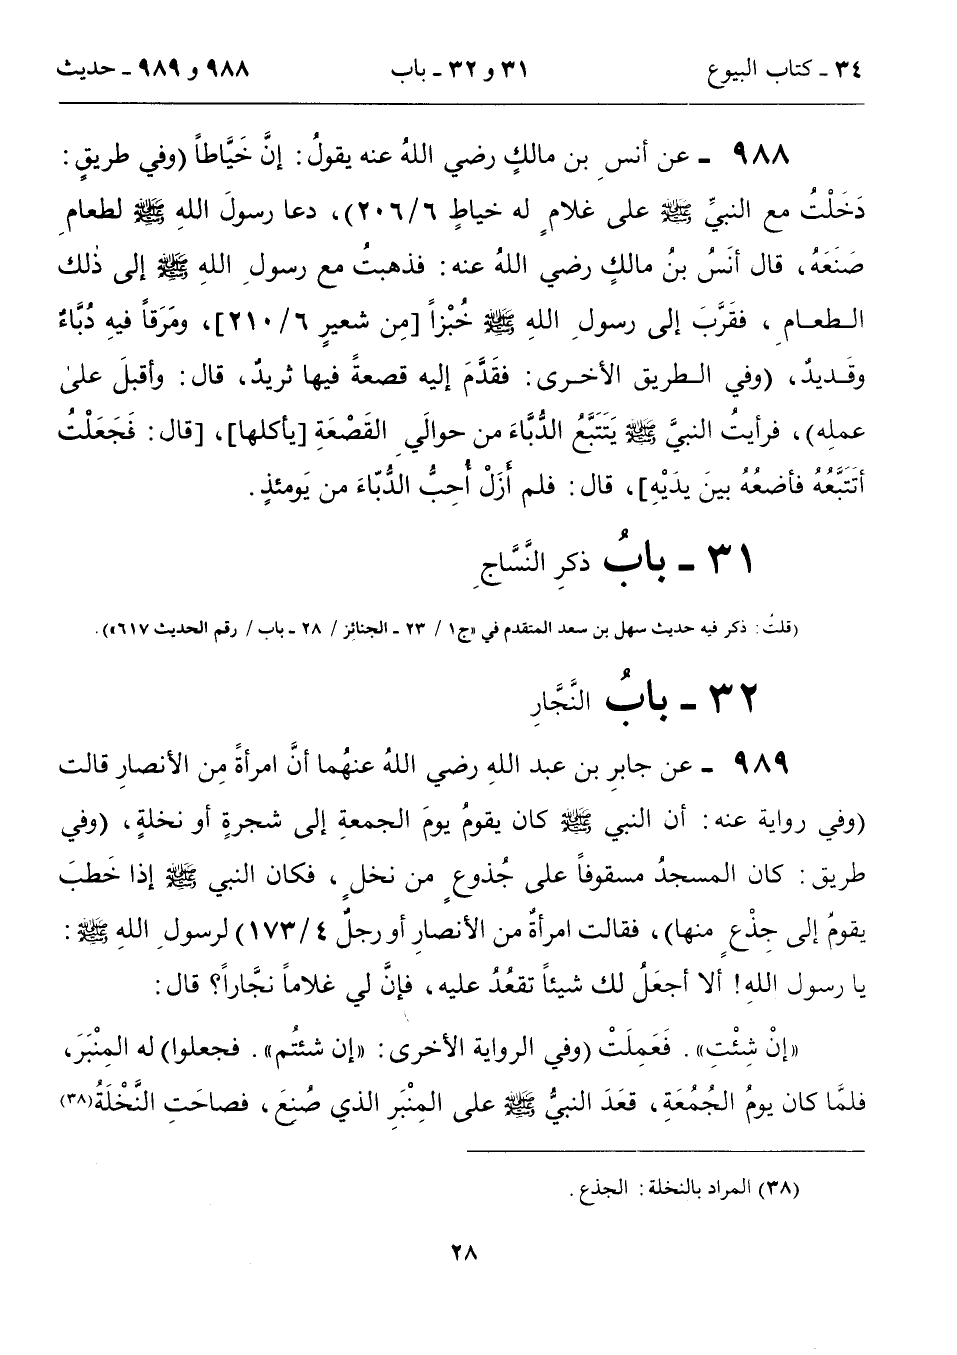 ٣٤ ـ كتاب البيوع ٣١ و ٣٢ ـ باب ٩٨٨ و ٩٨٩ ـ حديث
٩٨٨ ـ عن أنس بن مالكٍ رضي اللهُ عنه يقولُ: إنَّ خَيَّاطاً (وفي طريقٍ:
دَخَلْتُ مع النبيِّ ﷺ على غلامٍ له خياطٍ ٢٠٦/٦)، دعا رسولَ اللهِ ﷺ لطعامٍ
صَنَعَهُ، قال أنَسُ بنُ مالكٍ رضي اللهُ عنه: فذهبتُ مع رسولِ اللهِ ﷺ إلى ذٰلك
الطعامِ، فقَرَّبَ إلى رسولِ اللهِ ﷺ خُبْزاً [مِن شعيرٍ ٢١٠/٦]، ومَرَقاً فيهِ دُبَّاءٌ
وقَديدٌ، (وفي الطريق الأخرى: فقَدَّمَ إليه قصعةً فيها ثريدٌ، قال: وأقبلَ علىٰ
عملِه)، فرأيتُ النبيَّ ﷺ يَتَتَبَّعُ الدُّبَّاءَ من حوالَيِ القَصْعَةِ [يأكلها]، [قال: فَجَعَلْتُ
أتَتَبَّعُهُ فأضعُهُ بينَ يدَيْهِ]، قال: فلم أَزَلْ أُحِبُّ الدُّبّاءَ من يَومئذٍ.
٣١ ـ بابُ ذكرِ النَّسَّاجِ
(قلتُ: ذكر فيه حديث سهل بن سعد المتقدم في «ج١ / ٢٣ ـ الجنائز / ٢٨ ـ باب / رقم الحديث ٦١٧»).
٣٢ ـ بابُ النَّجَّارِ
٩٨٩ ـ عن جابرِ بن عبد اللهِ رضي اللهُ عنهُما أنَّ امرأةً مِن الأنصارِ قالت
(وفي رواية عنه: أن النبي ﷺ كان يقومُ يومَ الجمعةِ إلى شجرةٍ أو نخلةٍ، (وفي
طريق: كان المسجدُ مسقوفاً على جُذوعٍ من نخلٍ، فكان النبي ﷺ إذا خَطبَ
يقومُ إلى جِذْعٍ منها)، فقالت امرأةٌ من الأنصارِ أو رجلٌ ١٧٣/٤) لرسولِ اللهِ ﷺ:
يا رسول اللهِ! ألا أجعَلُ لك شيئاً تقعُدُ عليه، فإنَّ لي غلاماً نجَّاراً؟ قال:
«إنْ شِئْتِ». فَعَمِلَتْ (وفي الرواية الأخرى: «إن شئتُم». فجعلوا) له المِنْبَرَ،
فلمَّا كان يومُ الجُمُعَةِ، قعَدَ النبيُّ ﷺ على المِنْبَرِ الذي صُنِعَ، فصاحَتِ النَّخْلَةُ(٣٨)
(٣٨) المراد بالنخلة: الجذع.
٢٨